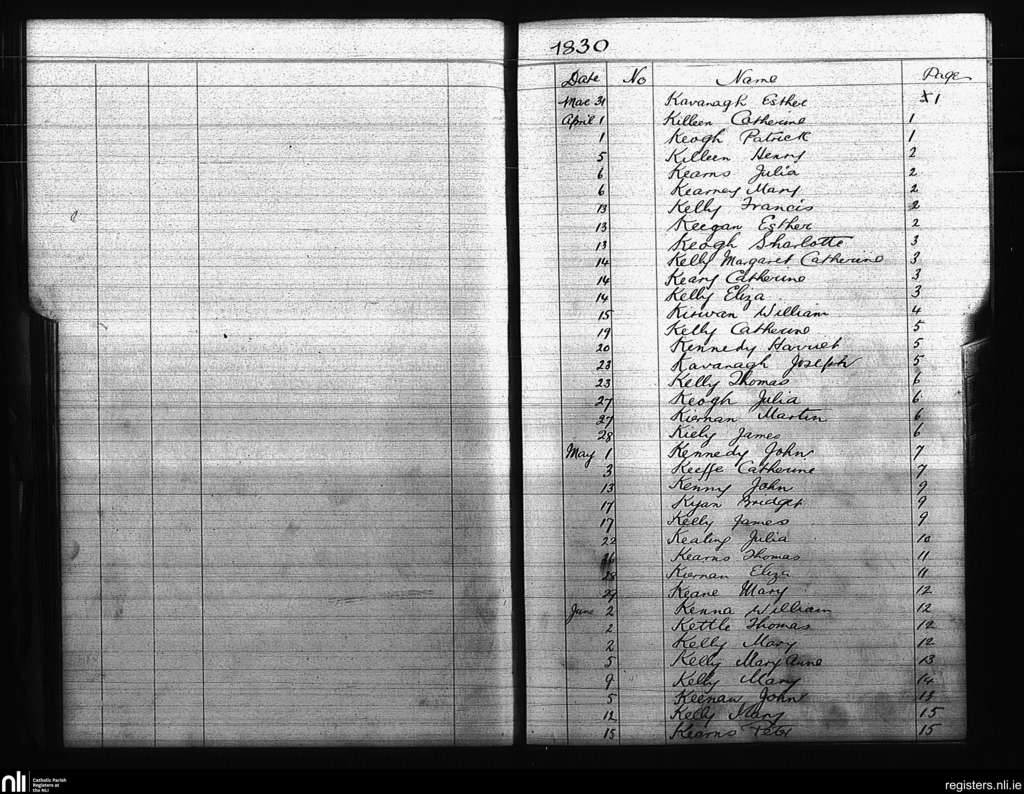 1830
Date No Name Page
Mar 31 Kavanagh Esther 1
April 1 Killeen Catherine 1
1 Keogh Patrick 1
5 Killeen Henry 2
6 Kearns Julia 2
6 Kearney Mary 2
13 Kelly Francis 2
13 Keegan Esther 2
13 Keogh Sharlotte 3
14 Kelly Margaret Catherine 3
14 Keary Catherine 3
14 Kelly Eliza 3
15 Kirwan William 4
19 Kelly Catherine 5
20 Kennedy Harriet 5
23 Kavanagh Joseph 5
23 Kelly Thomas 6
27 Keogh Julia 6
27 Kiernan Martin 6
28 Kiely James 6
May 1 Kennedy John 7
3 Keeffe Catherine 7
13 Kenny John 9
17 Kyan Bridget 9
17 Kelly James 9
22 Kealing Julia 10
26 Kearns Thomas 11
28 Kiernan Eliza 11
29 Keane Mary 12
June 2 Kenna William 12
2 Kettle Thomas 12
2 Kelly Mary 12
5 Kelly Mary Anne 13
9 Kelly Mary 14
5 Keenan John 13
12 Kelly Mary 15
15 Kearns Peter 15
nli
Catholic Parish
Registers at
the NLI
registers.nli.ie